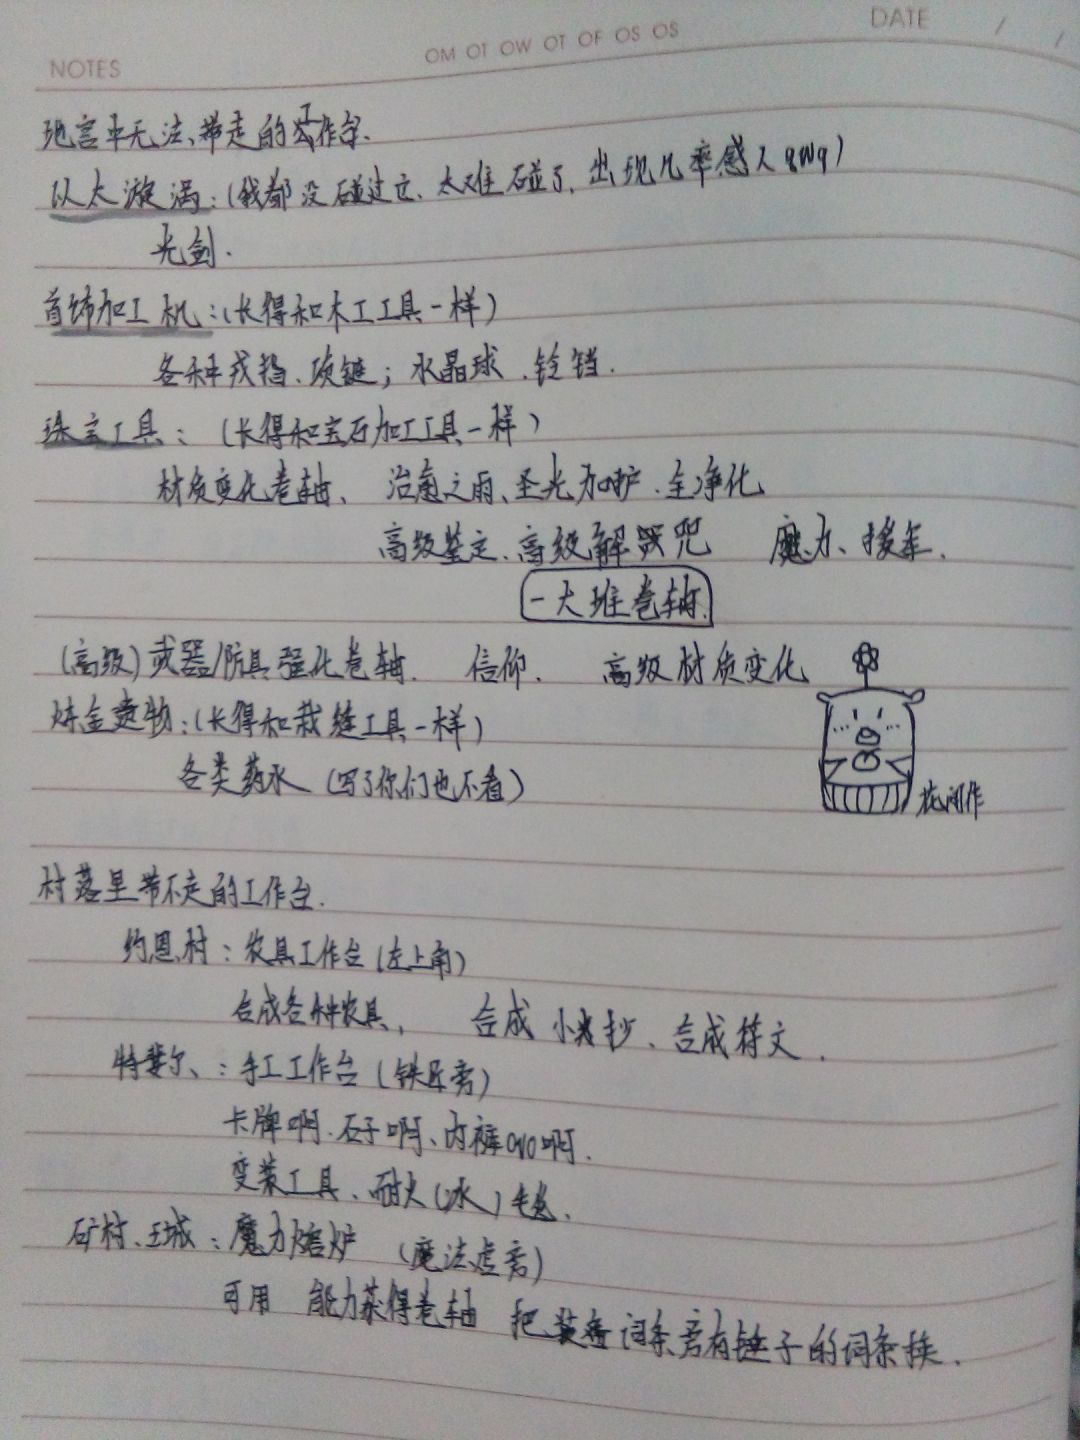 NOTES
OM OT OW OT OF OS OS
DATE / /
地宫中无法带走的工作台.
以太漩涡:(我都没碰过它、太难碰了,出现几率感人qwq)
光剑.
首饰加工机:(长得和木工工具一样)
各种戒指、项链;水晶球、铃铛.
珠宝工具:(长得和宝石加工工具一样)
材质变化卷轴、治愈之雨、圣光加护、全净化
高级鉴定、高级解诅咒 魔力、接车.
一大堆卷轴.
(高级)武器/防具强化卷轴. 信仰. 高级材质变化
炼金遗物:(长得和裁缝工具一样)
各类药水(写了你们也不看)
花闲作
村落里带不走的工作台.
约恩村:农具工作台(左上角)
合成各种农具, 合成小麦抄、合成符文.
特斐尔、:手工工作台(铁匠旁)
卡牌啊、石子啊、内裤OVO啊.
变装工具、耐火(冰)毛毯.
矿村、王城:魔力熔炉 (魔法店旁)
可用 能力获得卷轴 把装备词条旁有锤子的词条换.